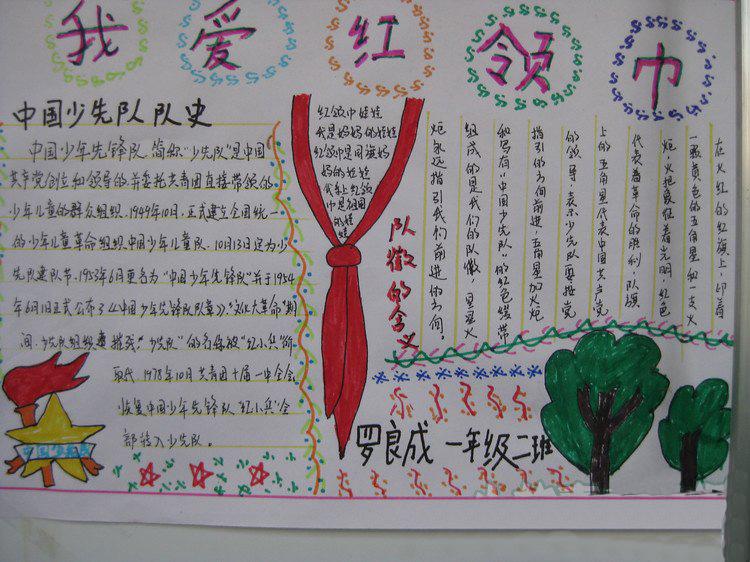 我爱红领巾
中国少先队队史
中国少年先锋队,简称"少先队"是中国
共产党创立和领导的并委托共青团直接带领的
少年儿童的群众组织.1949年10月,正式建立全国统一
的少年儿童革命组织中国少年儿童队.10月13日定为少
先队建队节.1953年6月更名为"中国少年先锋队"并于1954
年6月1日正式公布了《中国少年先锋队队章》."文化大革命"期
间,少先队组织遭摧残."少先队"的名称被"红小兵"所
取代.1978年10月共青团十届一中全会
恢复中国少年先锋队."红小兵"全
部转入少先队。
红领巾娃娃
我是妈妈的娃娃
红领巾是国旗妈
妈的娃娃
戴上红领
巾是祖国
的娃娃
队徽的含义
在火红的红旗上印着
一颗黄色的五角星和一支火
炬,火把象征着光明,红色
代表着革命的胜利,队旗
上的五角星代表中国共产党
的领导,表示少先队要按党
指引的方向前进,五角星加火炬
和写有"中国少先队"的红色绶带
组成的是我们的队徽,星星火
炬永远指引我们前进的方向。
罗良成 一年级二班